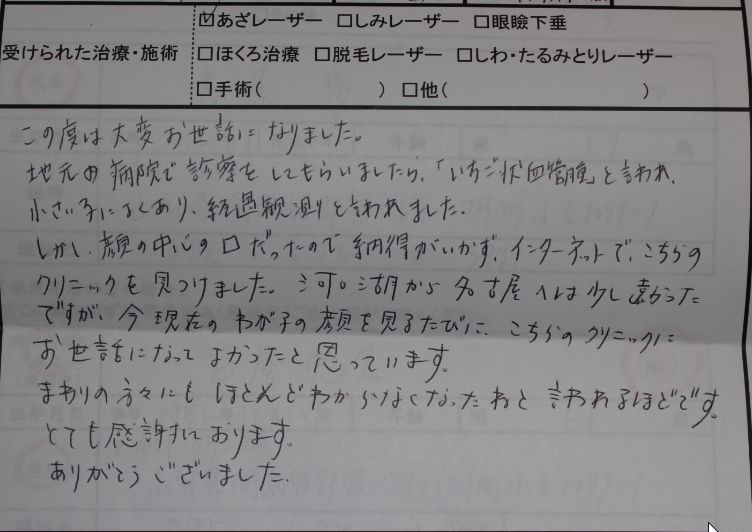 ☑あざレーザー □しみレーザー □眼瞼下垂
受けられた治療・施術 □ほくろ治療 □脱毛レーザー □しわ・たるみとりレーザー
□手術( ) □他( )
この度は大変お世話になりました。
地元の病院で診療をしてもらいましたら、「いちご状血管腫」と言われ、
小さい子によくあり、経過観測と言われました。
しかし、顔の中心の口だったので納得がいかず、インターネットで、こちらの
クリニックを見つけました。河口湖から名古屋へは少し遠かった
ですが、今現在のわが子の顔を見るたびに、こちらのクリニックに
お世話になってよかったと思っています。
まわりの方々にもほとんどわからなくなったねと言われるほどです。
とても感謝しております。
ありがとうございました。